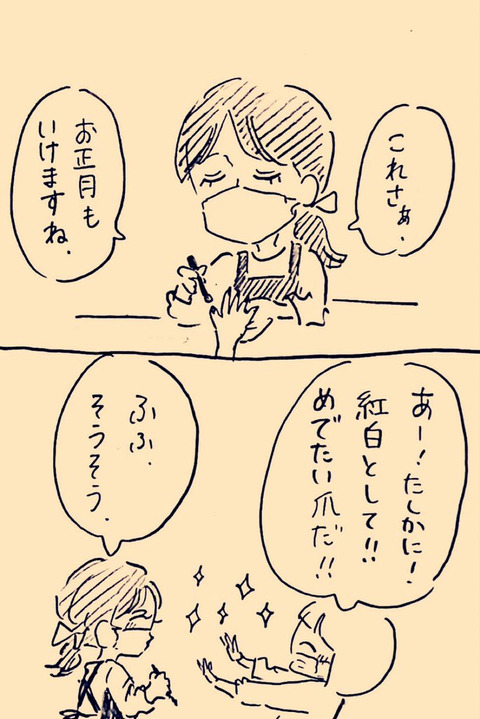 これさぁ.
お正月も
いけますね.
あー!たしかに!
紅白として!!
めでたい爪だ!!
ふふ.
そうそう.